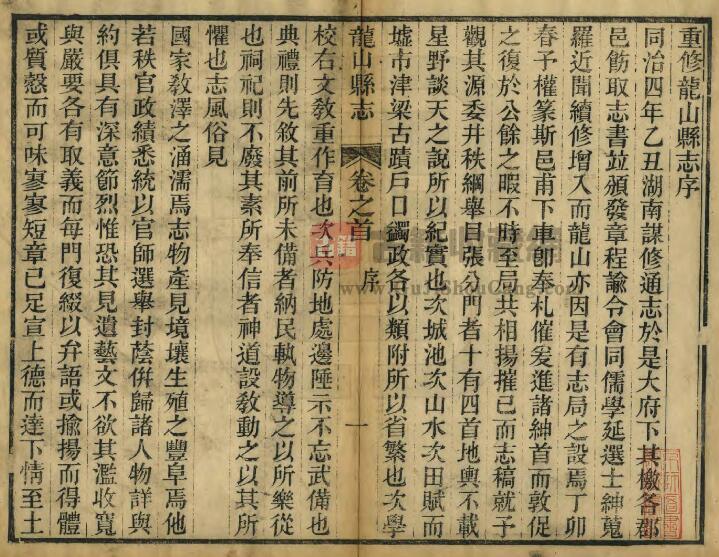 重修龍山縣志序
同治四年乙丑湖南謀修通志於是大府下其檄各郡
邑飭取志書並頒發章程諭令會同儒學延選士紳蒐
羅近聞續修增入而龍山亦因是有志局之設焉丁卯
春予權篆斯邑甫下車卽奉札催爰進諸紳首而敦促
之復於公餘之暇不時至局共相揚搉已而志稿就予
觀其源委井秩綱舉目張分門者十有四首地輿不載
星野談天之說所以紀實也次城池次山水次田賦而
墟市津梁古蹟戶口蠲政各以類附所以省繁也次學
龍山縣志
卷之首
序
一
校右文敎重作育也次兵防地處邊陲示不忘武備也
典禮則先敘其前所未備者納民軌物導之以所樂從
也祠祀則不廢其素所奉信者神道設敎動之以其所
懼也志風俗見
國家敎澤之涵濡焉志物產見境壤生殖之豐阜焉他
若秩官政績悉統以官師選舉封蔭倂歸諸人物詳與
約俱具有深意節烈惟恐其見遺藝文不欲其濫收寬
與嚴要各有取義而每門復綴以弁語或揄揚而得體
或質慤而可味寥寥短章已足宣上德而達下情至土
古籍